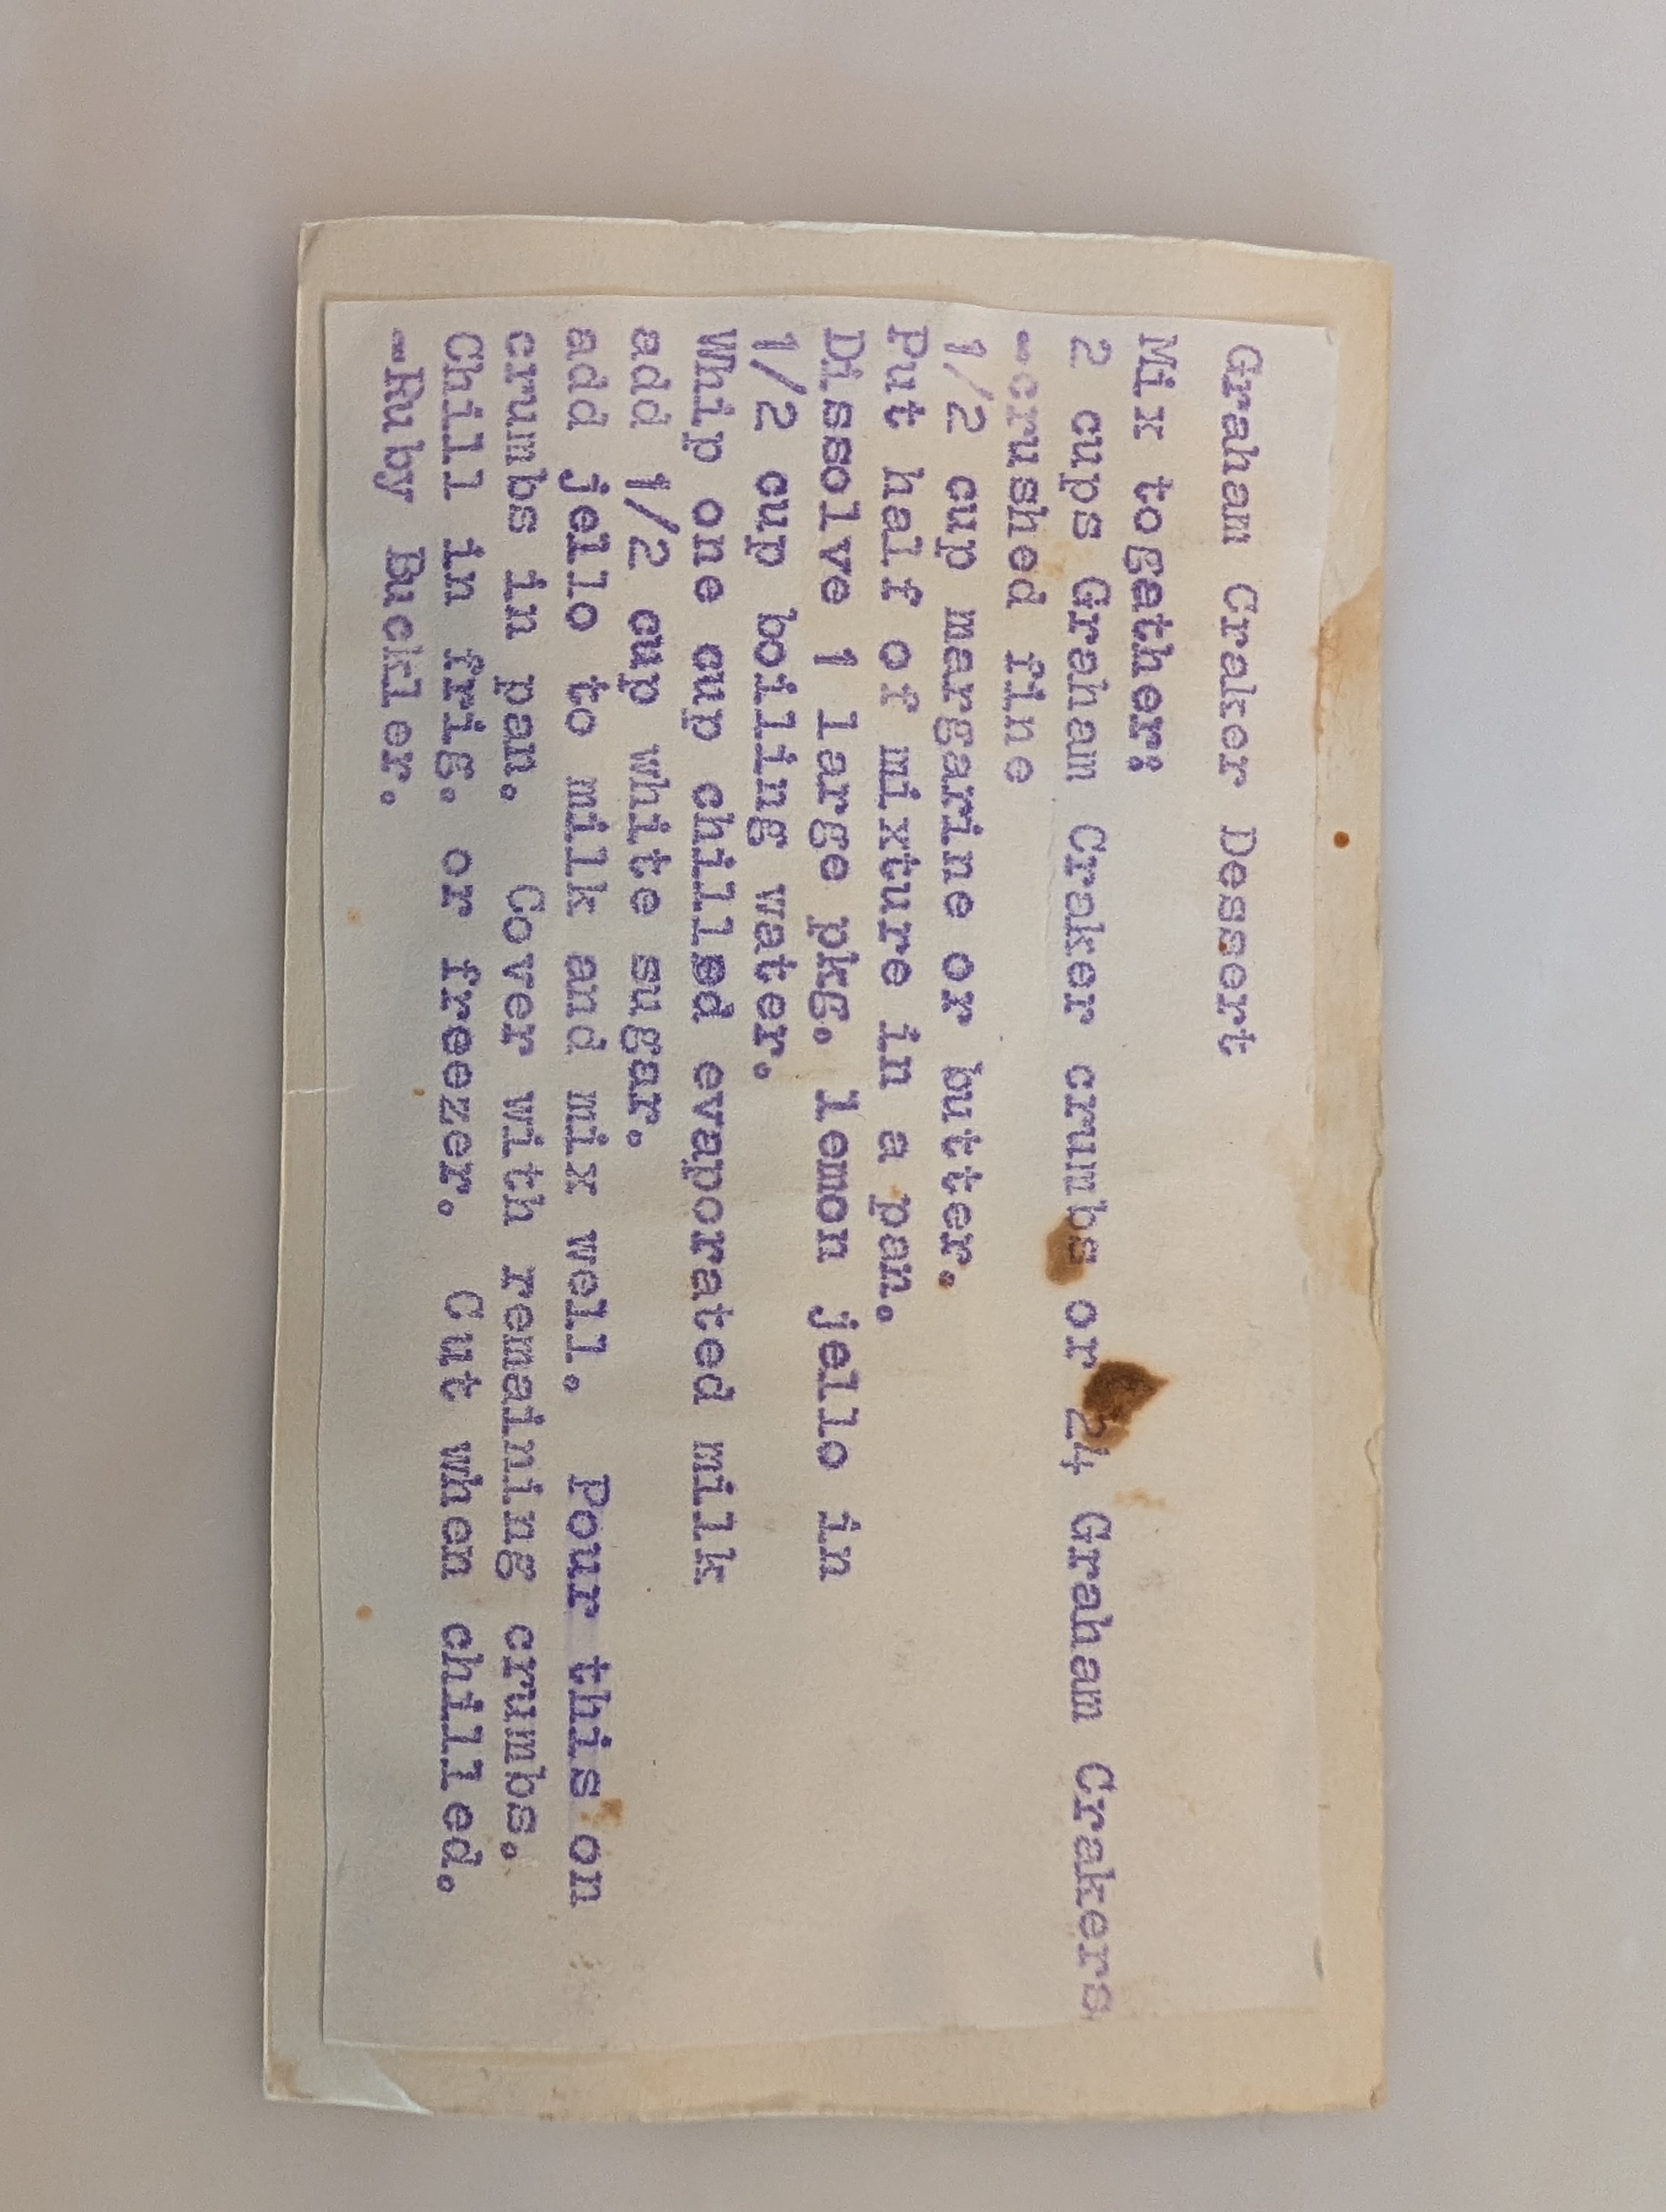 Graham Craker Dessert
Mix togather:
2 cups Graham Craker crumbs or 24 Graham Crakers
--crushed fine
1/2 cup margarine or butter.
Put half of mixture in a pan.
Dissolve 1 large pkg. lemon jello in
1/2 cup boiling water.
Whip one cup chilled evaporated milk
add 1/2 cup white sugar.
add jello to milk and mix well.  Pour this on
crumbs in pan.  Cover with remaining crumbs.
Chill in frig. or freezer.  Cut when chilled.
--Ruby Buckler.